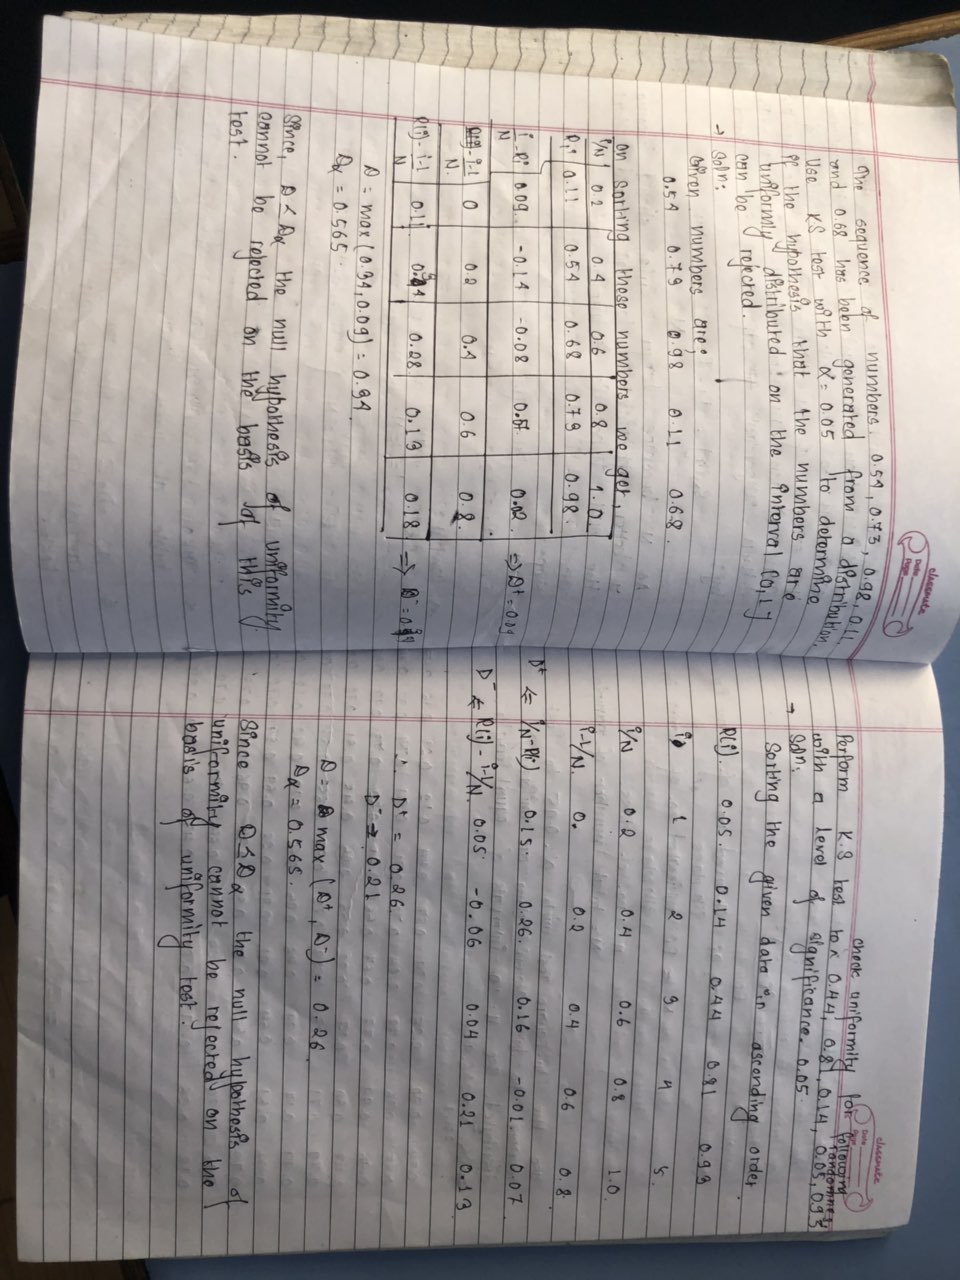 classmate
Date
Page
The sequence of numbers 0.54, 0.73, 0.98, 0.11,
and 0.68 has been generated from a distribution.
Use KS test with α = 0.05 to determine
if the hypothesis that the numbers are
uniformly distributed on the interval [0,1]
can be rejected.
→ Soln:
Given numbers are;
0.54 0.79 0.98 0.11 0.68.
On Sorting these numbers we get,
i/N 0.2 0.4 0.6 0.8 1.0
Ri 0.11 0.54 0.68 0.79 0.98
i/N - Ri 0.09 -0.14 -0.08 0.02 ⇒ D⁺ = 0.09
i-1/N. 0 0.2 0.4 0.6 0.8.
R(i) - i-1/N 0.11 0.34 0.28 0.19 0.18 ⇒ D⁻ =
D = max(0.34, 0.09) = 0.34
Dα = 0.565.
Since, D < Dα the null hypothesis of uniformity
cannot be rejected on the basis of this
test.
classmate
Date
Page
check uniformity for following
randomness
Perform K.S test to ^ 0.44, 0.81, 0.14, 0.05, 0.93
with a level of significance. 0.05.
→ Soln:
Sorting the given data in ascending order
R(i). 0.05. 0.14 0.44 0.81 0.93
i 1 2 3 4 5.
i/N 0.2 0.4 0.6 0.8 1.0.
i-1/N. 0. 0.2 0.4 0.6 0.8
D⁺ ⇐ i/N-R(i) 0.15. 0.26. 0.16 -0.01. 0.07
D⁻ ⇐ R(i) - i-1/N. 0.05 -0.06 0.04 0.21 0.13
∴ D⁺ = 0.26.
D⁻ → 0.21
D = max (D⁺, D⁻) = 0.26
Dα = 0.565.
Since D ≤ Dα the null hypothesis of
uniformity cannot be rejected on the
basis of uniformity test.